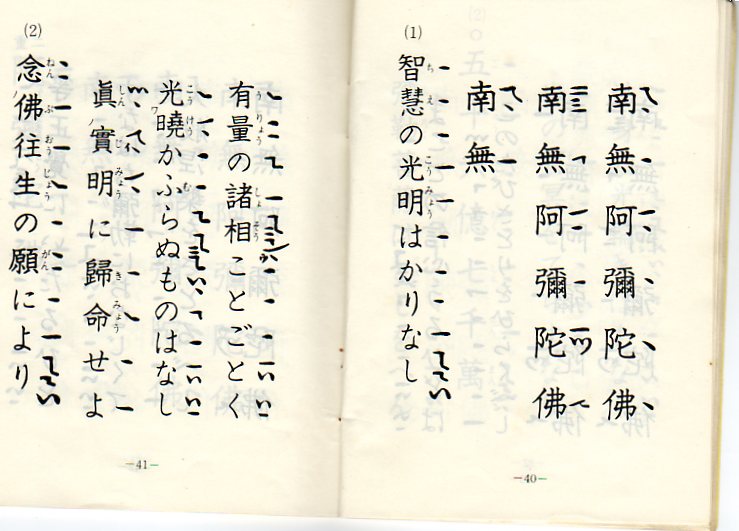 南無阿彌陀佛
南無阿彌陀佛
南無
(1)
智慧の光明はかりなし
—40—
有量の諸相ことごとく
光曉かふらぬものはなし
眞實明に歸命せよ
(2)
念佛往生の願により
—41—